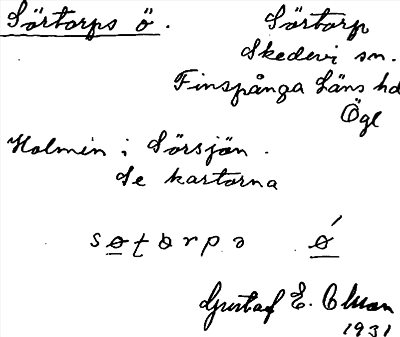 Sörtorps ö.
Sörtorp
Skedevi sn.
Finspånga läns hd
Ögl
Holmen i Sörsjön.
Se kartorna
Gustaf E. Olson
1931